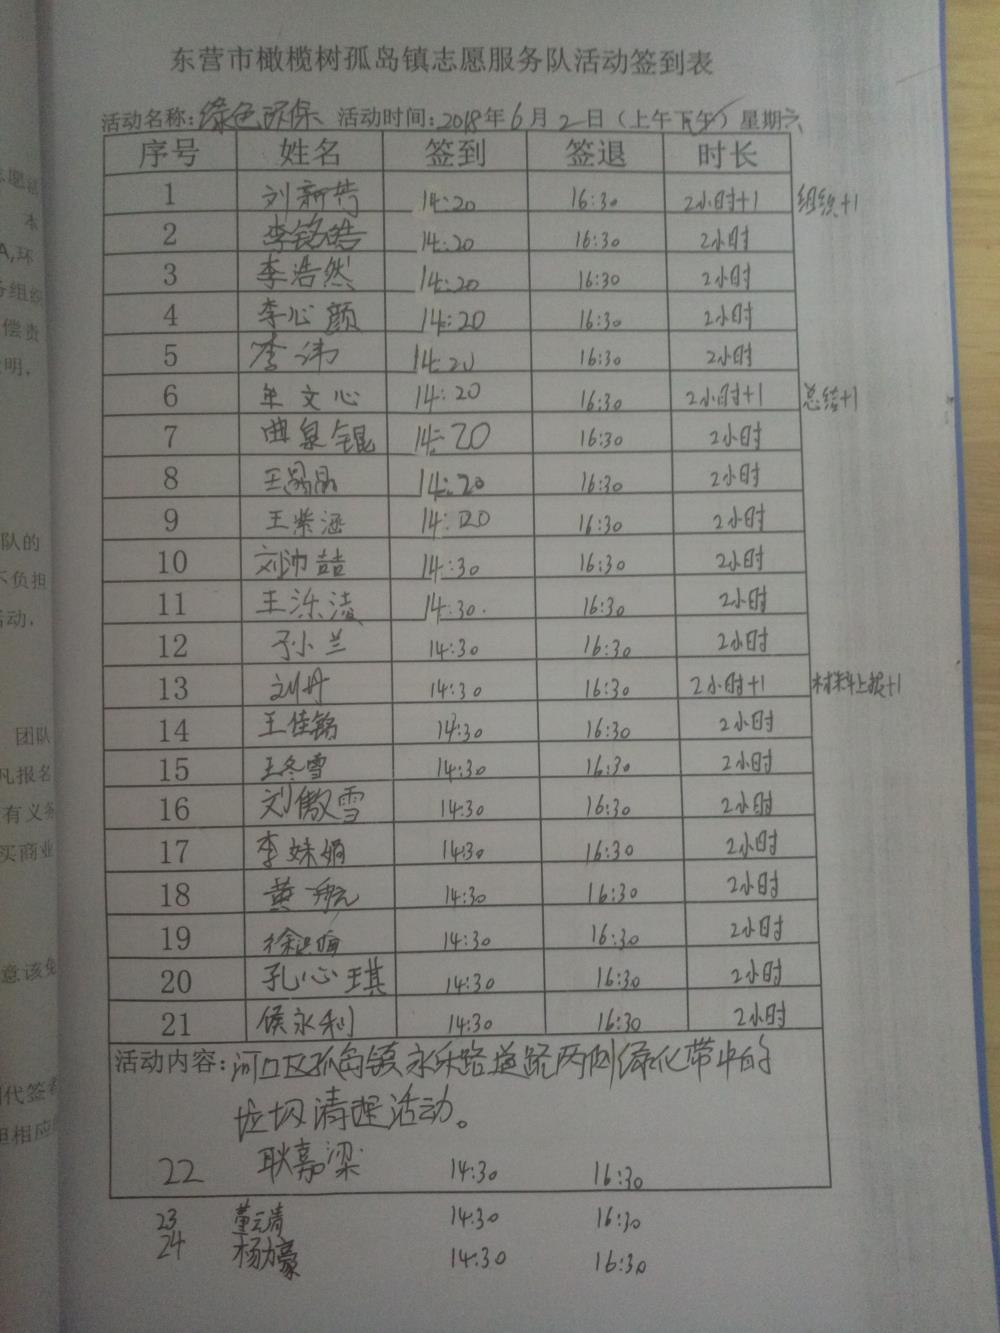 东营市橄榄树孤岛镇志愿服务队活动签到表
活动名称:绿色环保 活动时间:2018年6月2日(上午下午)星期六
序号 姓名 签到 签退 时长
1 刘新 14:20 16:30 2小时+1 组织+1
2 李铭皓 14:20 16:30 2小时
3 李浩然 14:20 16:30 2小时
4 李心颜 14:20 16:30 2小时
5 李沛 14:20 16:30 2小时
6 牟文心 14:20 16:30 2小时+1 总结+1
7 曲泉锟 14:20 16:30 2小时
8 王晶晶 14:20 16:30 2小时
9 王紫涵 14:20 16:30 2小时
10 刘沛喆 14:30 16:30 2小时
11 王泺 14:30. 16:30 2小时
12 小兰 14:30 16:30 2小时
13 刘丹 14:30 16:30 2小时+1 材料上报+1
14 王佳铭 14:30 16:30 2小时
15 王冬雪 14:30 16:30 2小时
16 刘傲雪 14:30 16:30 2小时
17 李姝娴 14:30 16:30 2小时
18 黄航 14:30 16:30 2小时
19 徐 14:30 16:30 2小时
20 孔心琪 14:30 16:30 2小时
21 侯永利 14:30 16:30 2小时
活动内容:河口区孤岛镇永乐路道路两侧绿化带中的
垃圾清理活动。
22 耿嘉梁 14:30 16:30
23 董云清 14:30 16:30
24 杨力豪 14:30 16:30
本
A,环
偿责
明,
队的
不负担
活动,
团队
凡报名
有义务
买商业
意该免
代签
担相应